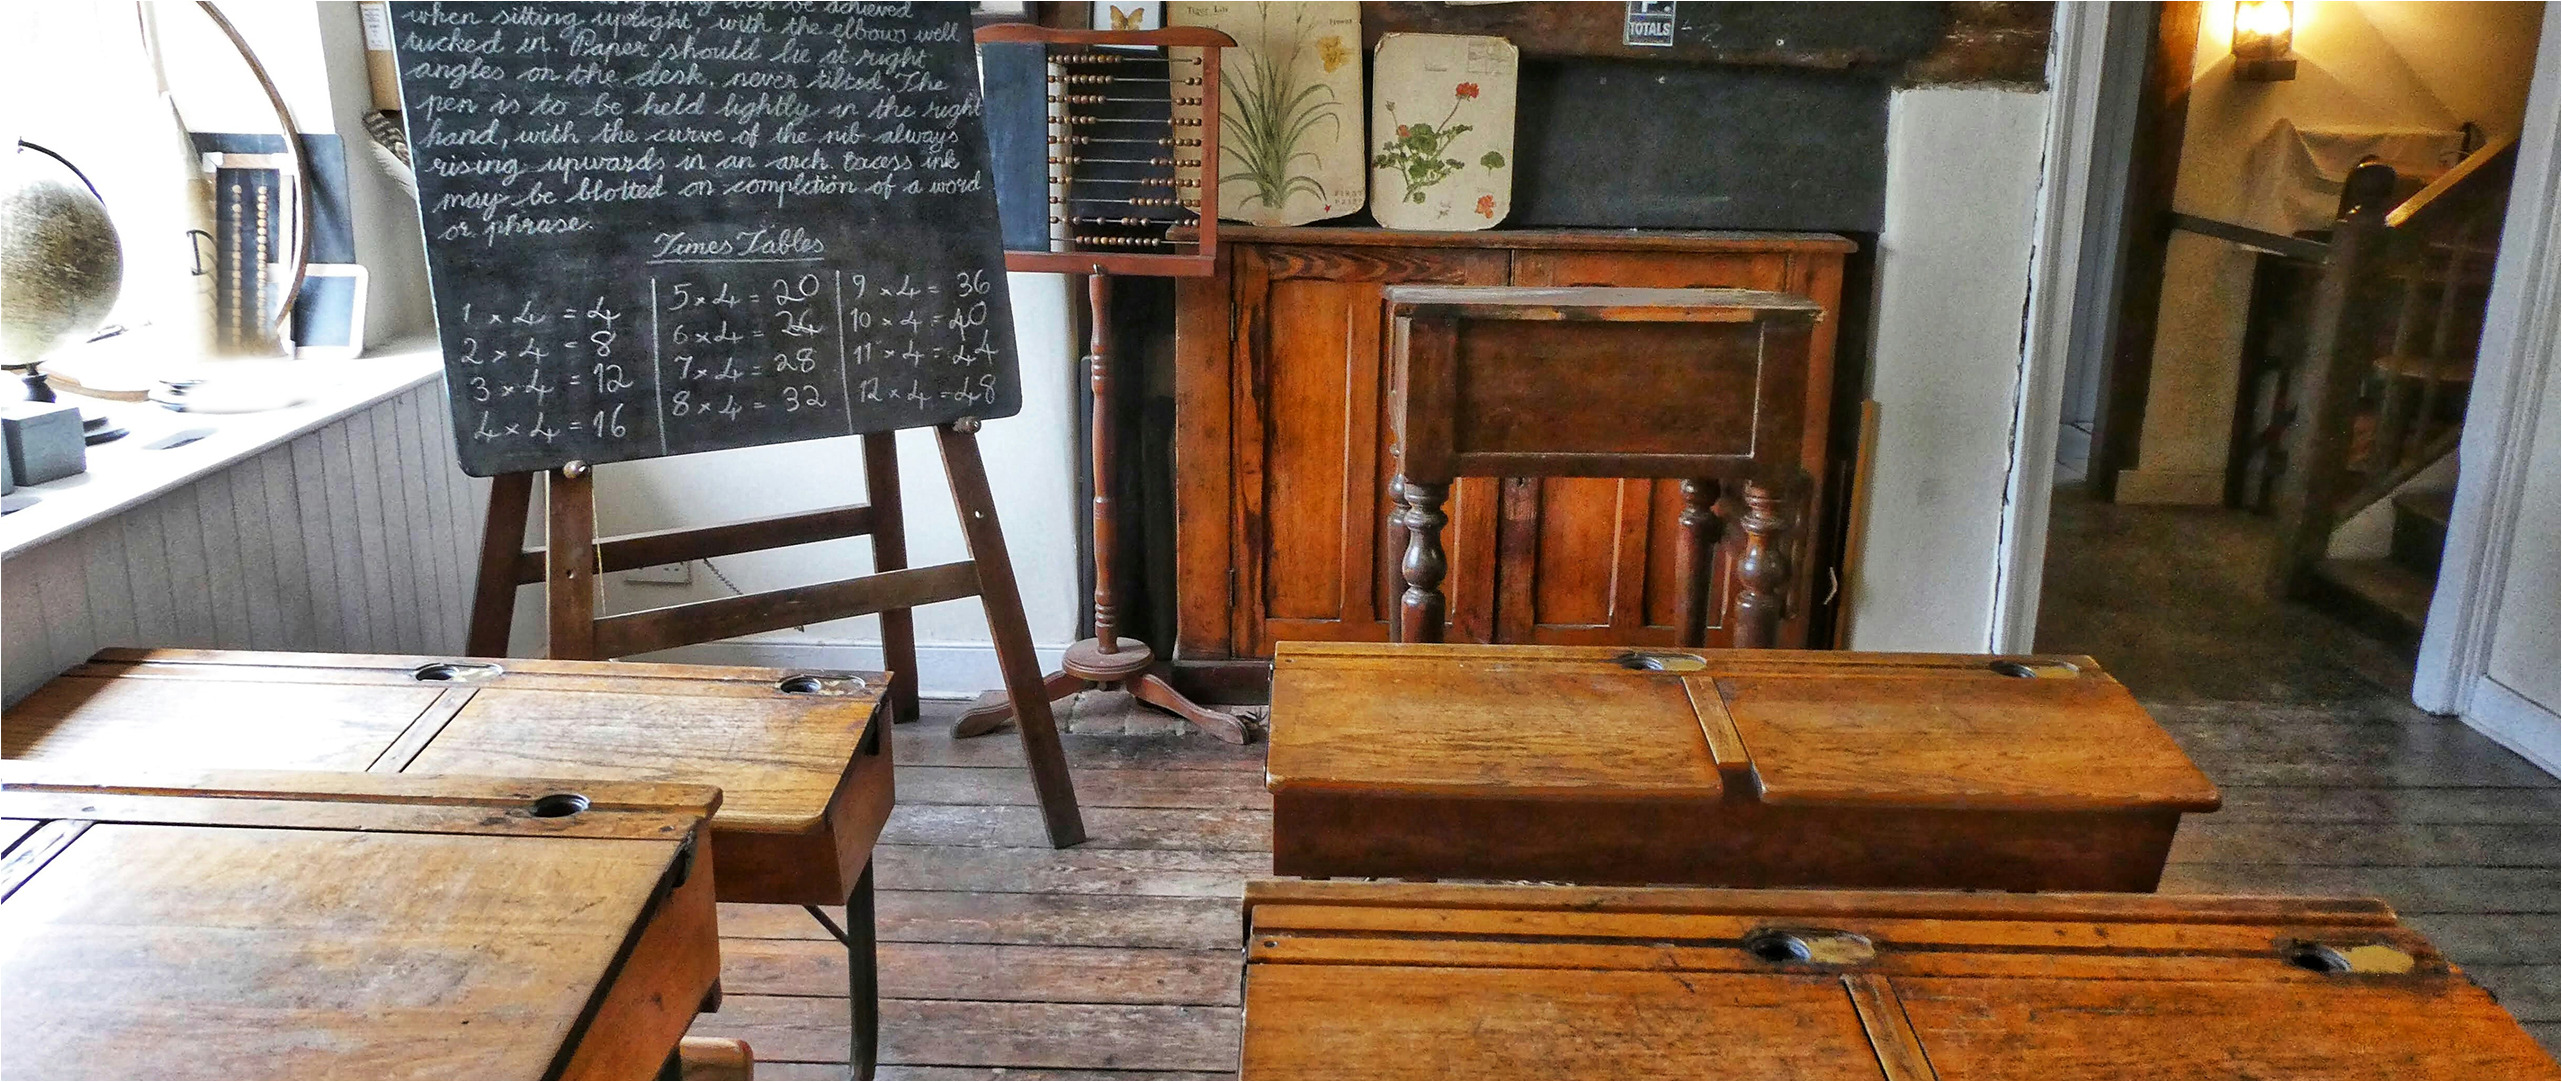 may best be achieved
when sitting upright, with the elbows well
tucked in. Paper should lie at right
angles on the desk, never tilted. The
pen is to be held lightly in the right
hand, with the curve of the nib always
rising upwards in an arch. Excess ink
may be blotted on completion of a word
or phrase.
Times Tables
1 x 4 = 4
2 x 4 = 8
3 x 4 = 12
4 x 4 = 16
5 x 4 = 20
6 x 4 = 24
7 x 4 = 28
8 x 4 = 32
9 x 4 = 36
10 x 4 = 40
11 x 4 = 44
12 x 4 = 48
TOTALS